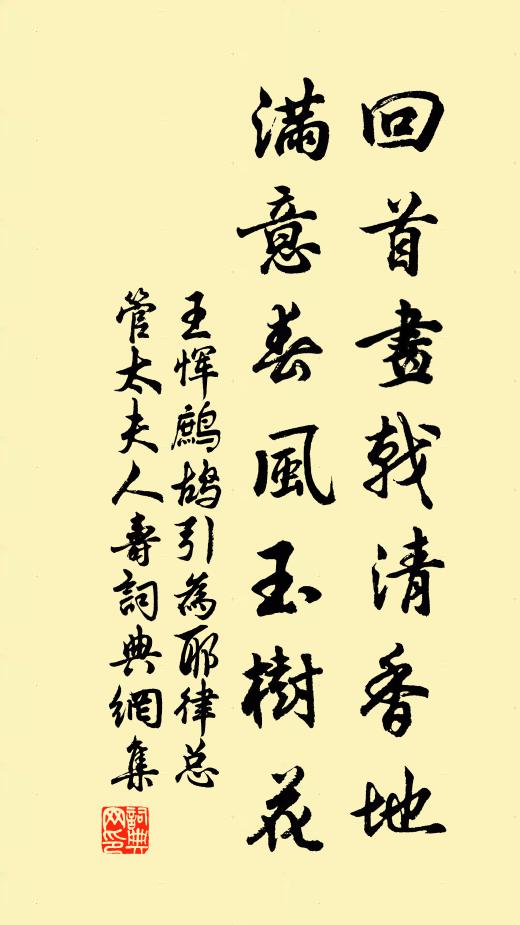 回首畫戟清香地
滿意春風玉樹花
王惲鷓鴣引為耶律总
管太夫人壽詞典網集
詞典网印